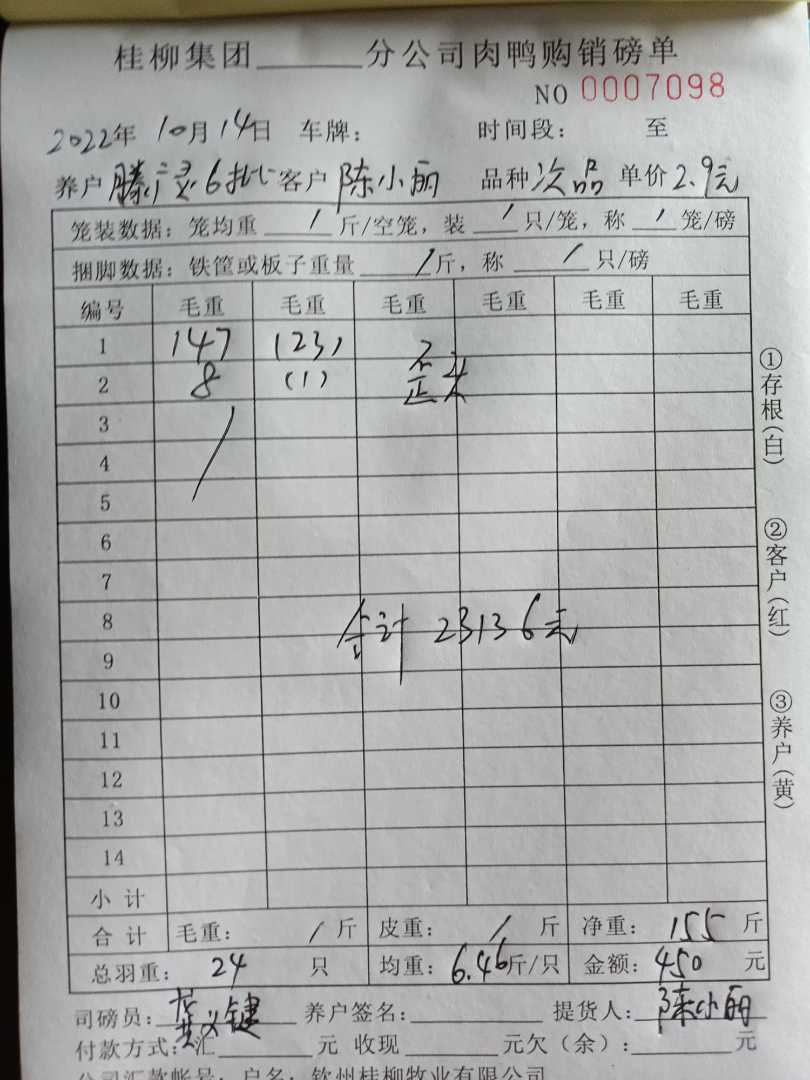 桂柳集团______分公司肉鸭购销磅单
NO 0007098
2022年 10月 14日 车牌： 时间段： 至
养户 滕广灵6批 客户 陈小丽 品种 次品 单价 2.9元
笼装数据：笼均重 / 斤/空笼，装 / 只/笼，称 / 笼/磅
捆脚数据：铁筐或板子重量 / 斤，称 / 只/磅
编号 毛重 毛重 毛重 毛重 毛重 毛重
1 147 (23)
2 8 (1)
3
4
5
6
7
8
合计 23136元
9
10
11
12
13
14
小 计
合 计 毛重： / 斤 皮重： / 斤 净重： 155 斤
总羽重： 24 只 均重： 6.46 斤/只 金额： 450 元
司磅员： 养户签名： 提货人： 陈小丽
付款方式：汇______元 收现______元欠（余）：______元
公司汇款帐号：户名：钦州桂柳牧业有限公司
①存根（白）
②客户（红）
③养户（黄）